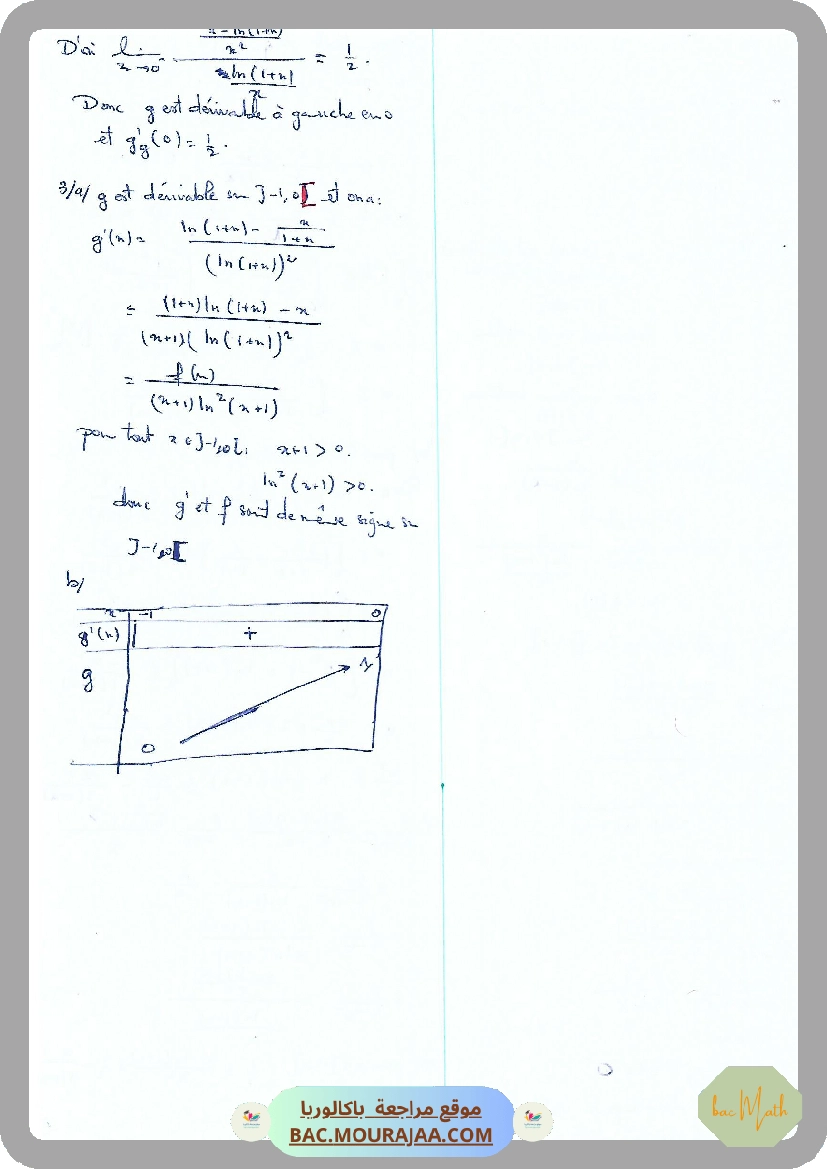 D'où lim x→0⁻ ((x - ln(1+x))/x²) / (ln(1+x)/x) = 1/2.
Donc g est dérivable à gauche en 0
et g'g(0) = 1/2.
3/a/ g est dérivable sur ]-1,0[ et on a:
g'(x) = (ln(1+x) - x/(1+x)) / (ln(1+x))²
= ((1+x)ln(1+x) - x) / ((x+1)(ln(1+x))²)
= f(x) / ((x+1)ln²(x+1))
pour tout x ∈ ]-1,0[, x+1 > 0.
ln²(x+1) > 0.
donc g' et f sont de même signe sur
]-1,0[
b/
x -1 0
g'(x) +
g 0 1
موقع مراجعة باكالوريا
BAC.MOURAJAA.COM
bac Math